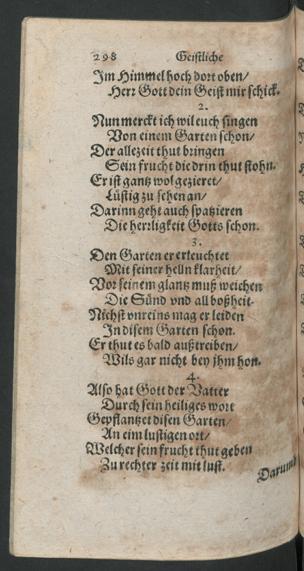 298 Geistliche
Im Himmel hoch dort oben/
Herr Gott dein Geist mir schick.
2.
Nun merckt ich wil euch singen
Von einem Garten schon/
Der allezeit thut bringen
Sein frucht die drin thut stohn.
Er ist gantz wol gezieret/
Lüstig zu sehen an/
Darinn geht auch spatzieren
Die herrligkeit Gotts schon.
3.
Den Garten er erleuchtet
Mit seiner helln klarheit/
Vor seinem glantz muß weichen
Die Sünd vnd all boßheit.
Nichst vnreins mag er leiden
In disem Garten schon.
Er thut es bald außtreiben/
Wils gar nicht bey jhm hon.
4.
Also hat Gott der Vatter
Durch sein heiliges wort
Gepflantzet disen Garten/
An eim lustigen ort/
Welcher sein frucht thut geben
Zu rechter zeit mit lust.
Darumb